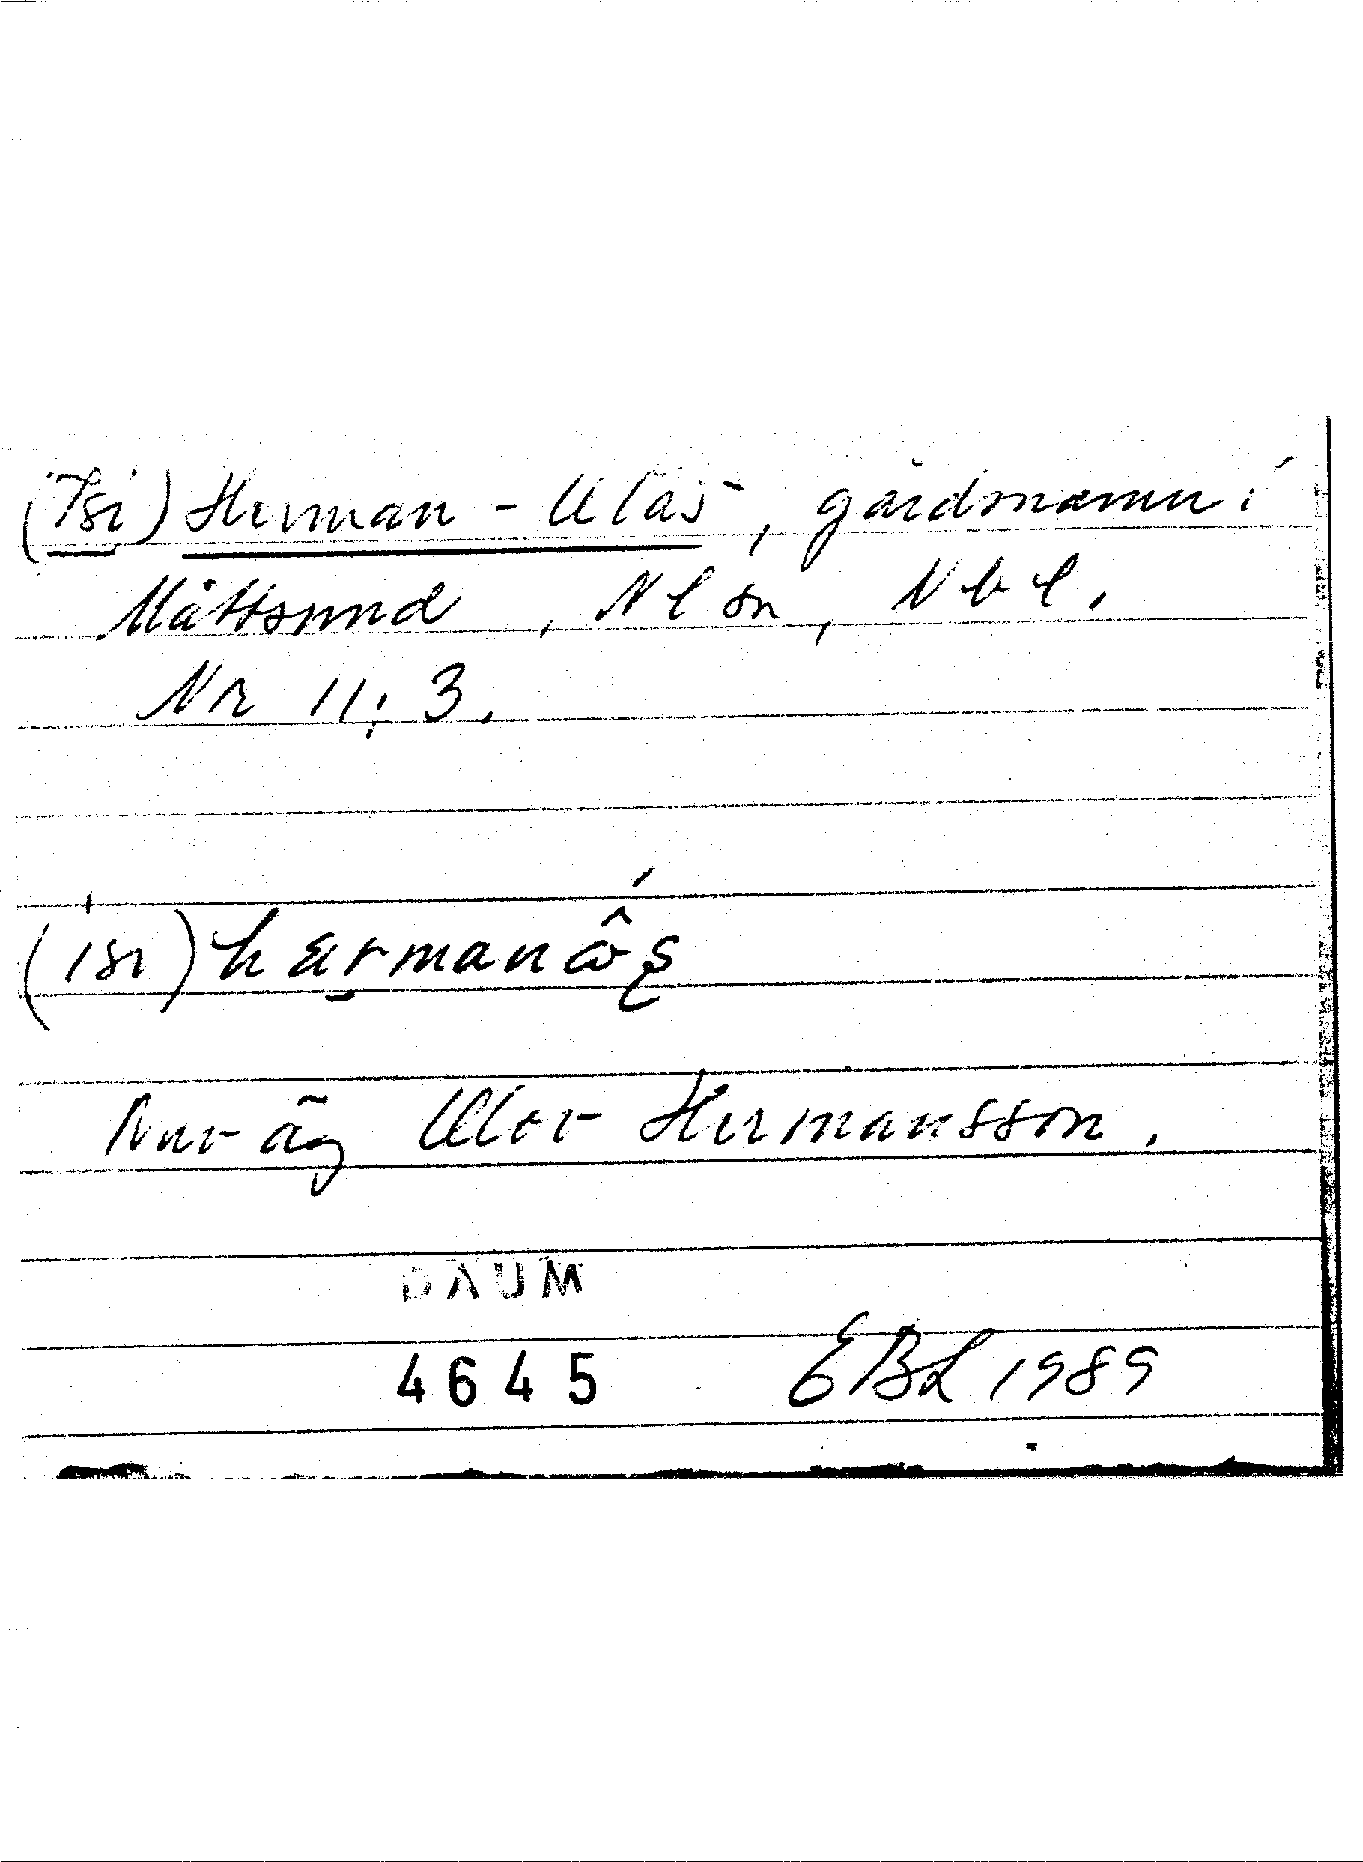 (Isi) Herman-Olas, gårdsnamn i
Måttsund, Nl sn, Nbl.
Nr 11:3.
(isi) hærmanôs
Nuv äg Olov Hermansson.
DAUM
4645 EBL 1989